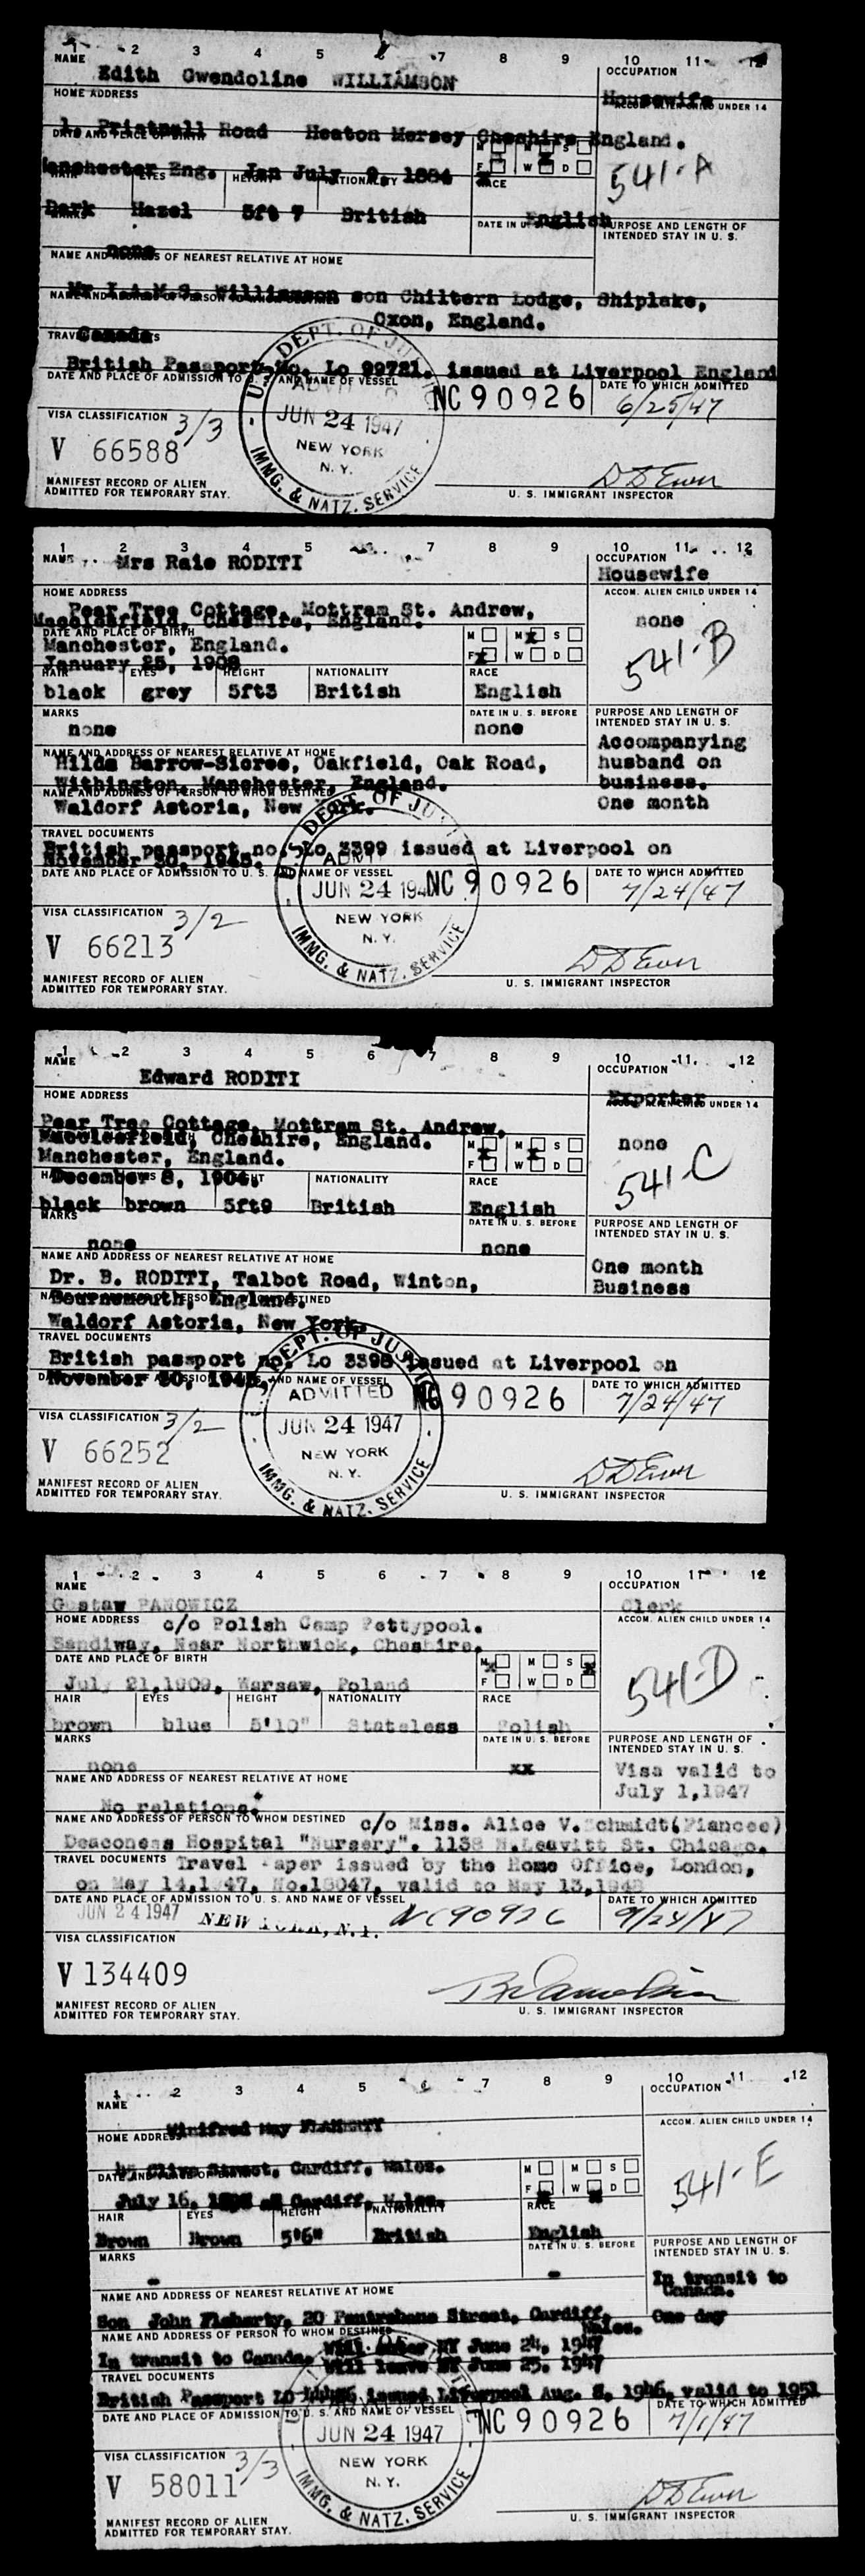 1 2 3 4 5 6 7 8 9 10 11 12
NAME OCCUPATION
Edith Gwendoline WILLIAMSON
HOME ADDRESS Housewife
ACCOM. ALIEN CHILD UNDER 14
1, Road Heaton Mersey Cheshire England.
DATE AND PLACE OF BIRTH
M M S
F W D
Manchester Eng. Jan July 9, 1884
HAIR EYES HEIGHT NATIONALITY RACE
541-A
Dark Hazel 5ft 7 British English
MARKS DATE IN U. S. BEFORE PURPOSE AND LENGTH OF
INTENDED STAY IN U. S.
none
NAME AND ADDRESS OF NEAREST RELATIVE AT HOME
Mr Williamson son Chiltern Lodge, Shiplake,
NAME AND ADDRESS OF PERSON TO WHOM DESTINED
Oxon, England.
Canada
TRAVEL DOCUMENTS
British Passport No. Lo 99721. issued at Liverpool England
DATE AND PLACE OF ADMISSION TO U. S. AND NAME OF VESSEL DATE TO WHICH ADMITTED
NC 90926 6/25/47
VISA CLASSIFICATION 3/3
V 66588
U. S. DEPT. OF JUSTICE
ADMITTED
JUN 24 1947
NEW YORK
N. Y.
IMMG. & NATZ. SERVICE
D D Ewer
MANIFEST RECORD OF ALIEN
ADMITTED FOR TEMPORARY STAY.
U. S. IMMIGRANT INSPECTOR
1 2 3 4 5 7 8 9 10 11 12
NAME Mrs Raie RODITI OCCUPATION
Housewife
HOME ADDRESS ACCOM. ALIEN CHILD UNDER 14
Pear Tree Cottage, Mottram St. Andrew,
Macclesfield, Cheshire, England. none
DATE AND PLACE OF BIRTH
M M S
F W D
Manchester, England.
January 25, 1908
541-B
HAIR EYES HEIGHT NATIONALITY RACE
black grey 5ft3 British English
MARKS DATE IN U. S. BEFORE PURPOSE AND LENGTH OF
INTENDED STAY IN U. S.
none none
Accompanying
husband on
business.
One month
NAME AND ADDRESS OF NEAREST RELATIVE AT HOME
Hilda Barrow-Sicree, Oakfield, Oak Road,
Withington, Manchester, England.
NAME AND ADDRESS OF PERSON TO WHOM DESTINED
Waldorf Astoria, New York.
TRAVEL DOCUMENTS
British passport no. Lo 3399 issued at Liverpool on
November 30, 1945.
DATE AND PLACE OF ADMISSION TO U. S. AND NAME OF VESSEL DATE TO WHICH ADMITTED
NC 90926 7/24/47
VISA CLASSIFICATION 3/2
V 66213
U. S. DEPT. OF JUSTICE
ADMITTED
JUN 24 1947
NEW YORK
N. Y.
IMMG. & NATZ. SERVICE
D D Ewer
MANIFEST RECORD OF ALIEN
ADMITTED FOR TEMPORARY STAY.
U. S. IMMIGRANT INSPECTOR
1 2 3 4 5 6 7 8 9 10 11 12
NAME OCCUPATION
Edward RODITI
HOME ADDRESS Exporter
ACCOM. ALIEN CHILD UNDER 14
Pear Tree Cottage, Mottram St. Andrew,
Macclesfield, Cheshire, England. none
M M S
F W D
Manchester, England.
December 8, 1904.
541-C
NATIONALITY RACE
black brown 5ft9 British English
MARKS DATE IN U. S. BEFORE PURPOSE AND LENGTH OF
INTENDED STAY IN U. S.
none none
NAME AND ADDRESS OF NEAREST RELATIVE AT HOME
One month
Business
Dr. B. RODITI, Talbot Road, Winton,
Bournemouth, England.
Waldorf Astoria, New York.
TRAVEL DOCUMENTS
British passport no. Lo 3398 issued at Liverpool on
November 30, 1945,
AND NAME OF VESSEL DATE TO WHICH ADMITTED
NC 90926 7/24/47
VISA CLASSIFICATION 3/2
V 66252
DEPT. OF JUSTICE
ADMITTED
JUN 24 1947
NEW YORK
N. Y.
IMMG. & NATZ. SERVICE
D D Ewer
MANIFEST RECORD OF ALIEN
ADMITTED FOR TEMPORARY STAY.
U. S. IMMIGRANT INSPECTOR
1 2 3 4 5 6 7 8 9 10 11 12
NAME OCCUPATION
Gustaw PANOWICZ Clerk
HOME ADDRESS c/o Polish Camp Pettypool. ACCOM. ALIEN CHILD UNDER 14
Sandiway, Near Northwick, Cheshire.
DATE AND PLACE OF BIRTH
M M S
F W D
July 21,1909, Warsaw, Poland
541-D
HAIR EYES HEIGHT NATIONALITY RACE
brown blue 5'10" Stateless Polish
MARKS DATE IN U. S. BEFORE PURPOSE AND LENGTH OF
INTENDED STAY IN U. S.
none xx
Visa valid to
July 1,1947
NAME AND ADDRESS OF NEAREST RELATIVE AT HOME
No relations.
NAME AND ADDRESS OF PERSON TO WHOM DESTINED c/o Miss. Alice V.Schmidt(Fiancee)
Deaconess Hospital "Nursery". 1138 N.Leavitt St. Chicago.
TRAVEL DOCUMENTS Travel Paper issued by the Home Office, London,
on May 14,1947, No.18047, valid to May 13,1948
DATE AND PLACE OF ADMISSION TO U. S. AND NAME OF VESSEL DATE TO WHICH ADMITTED
JUN 24 1947 NEW YORK, N.Y. NC90926 9/24/47
VISA CLASSIFICATION
V 134409
MANIFEST RECORD OF ALIEN
ADMITTED FOR TEMPORARY STAY.
U. S. IMMIGRANT INSPECTOR
1 2 3 4 5 6 7 8 9 10 11 12
NAME OCCUPATION
Winifred May FLAHERTY
HOME ADDRESS ACCOM. ALIEN CHILD UNDER 14
Clive Street, Cardiff, Wales.
DATE AND PLACE OF BIRTH
M M S
F W D
July 16, at Cardiff, Wales.
541-E
HAIR EYES HEIGHT NATIONALITY RACE
Brown Brown 5'6" British English
MARKS DATE IN U. S. BEFORE PURPOSE AND LENGTH OF
INTENDED STAY IN U. S.
- -
In transit to
Canada.
One day
NAME AND ADDRESS OF NEAREST RELATIVE AT HOME
Son John Flaherty, 20 Street, Cardiff,
Wales.
NAME AND ADDRESS OF PERSON TO WHOM DESTINED
Will NY June 24, 1947
In transit to Canada. Will leave NY June 25, 1947
TRAVEL DOCUMENTS
British Passport LO issued Liverpool Aug. 8, 1946, valid to 1951
DATE AND PLACE OF ADMISSION TO U. S. AND NAME OF VESSEL DATE TO WHICH ADMITTED
NC 90926 7/1/47
VISA CLASSIFICATION 3/3
V 58011
JUN 24 1947
NEW YORK
N. Y.
IMMG. & NATZ. SERVICE
D D Ewer
MANIFEST RECORD OF ALIEN
ADMITTED FOR TEMPORARY STAY.
U. S. IMMIGRANT INSPECTOR